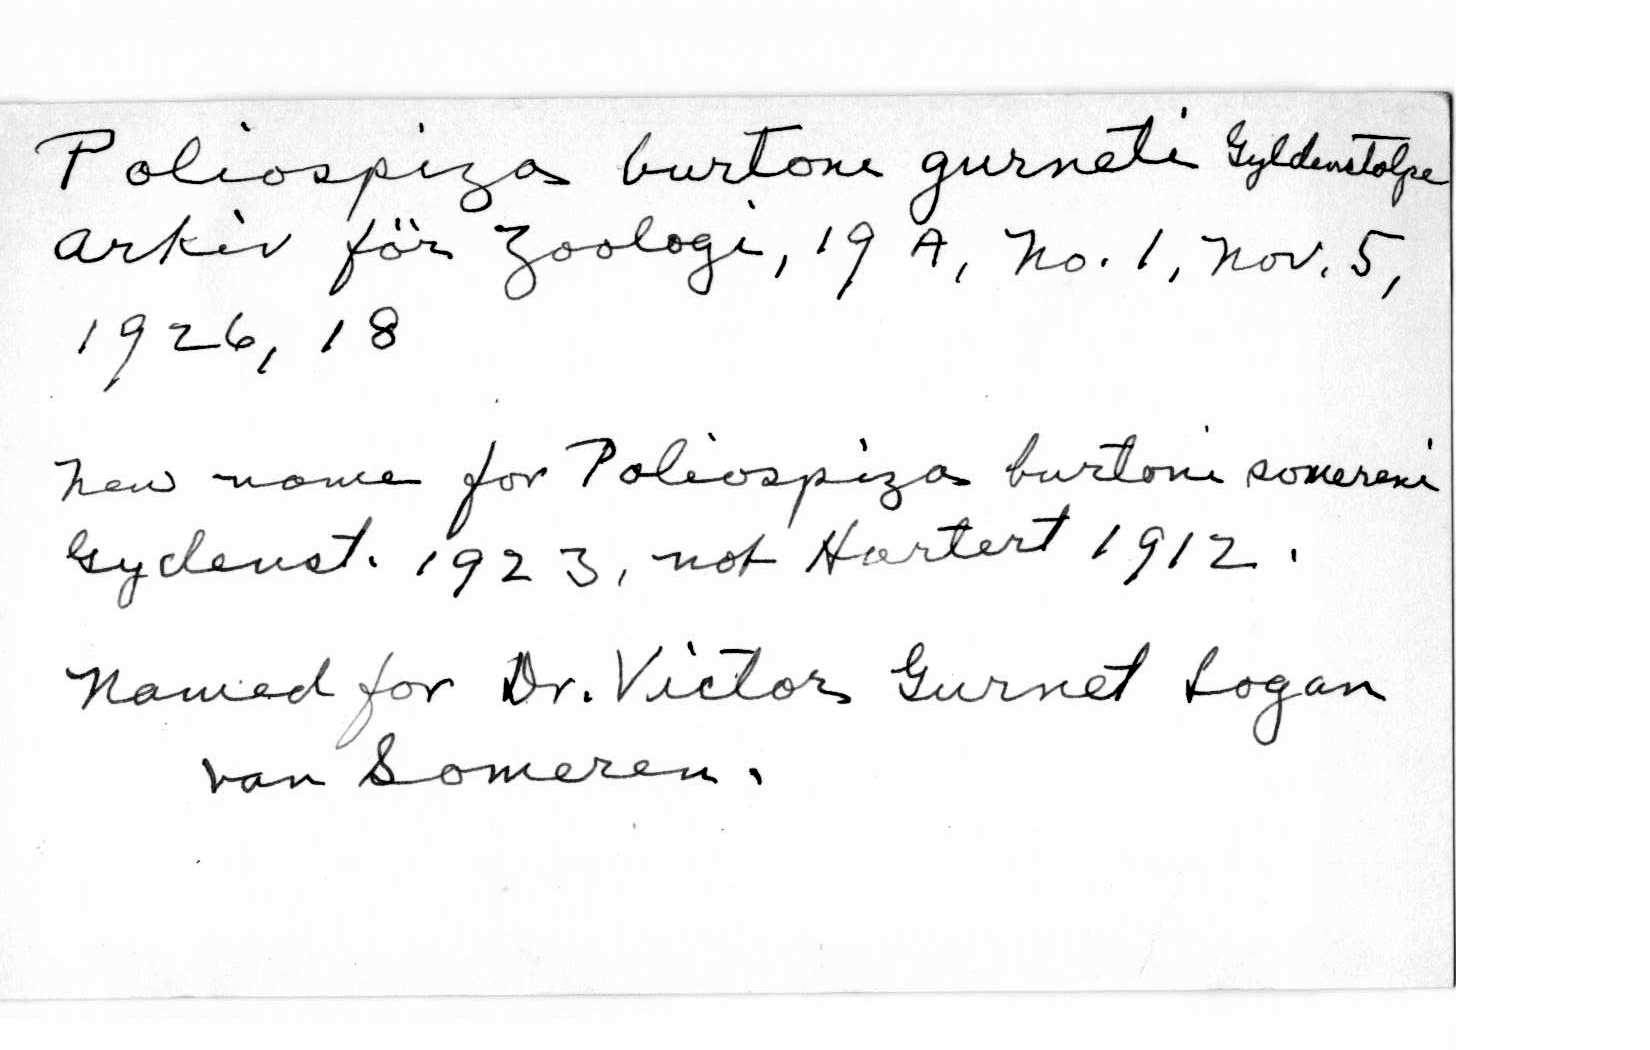 Poliospiza burtoni gurneti Gyldenstolpe
Arkiv för Zoologi, 19 A, No. 1, Nov. 5,
1926, 18
New name for Poliospiza burtoni somereni
Gydenst. 1923, not Hartert 1912.
Named for Dr. Victor Gurnet Logan
van Someren.